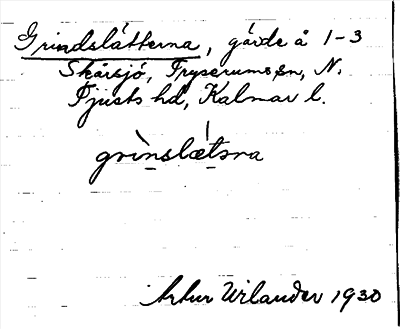 Grindslåtterna, gärde å 1-3
Skårsjö, Tryserums sn, N.
Tjusts hd, Kalmar l.
grìnslætṣra
Artur Wilander 1930